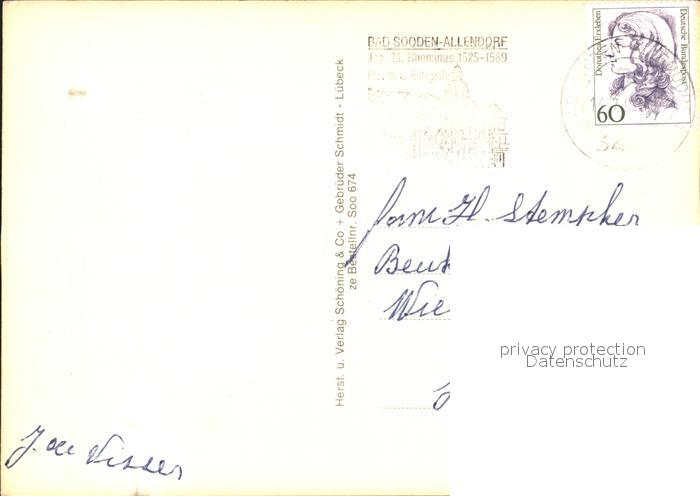 BAD SOODEN-ALLENDORF
Joh. M. Rhenanus 1525-1589
Dorothea Erxleben
Deutsche Bundespost
60
34
Herst. u. Verlag Schöning & Co + Gebrüder Schmidt - Lübeck
ze Bestellnr. Soo 674
Fam H. Stempher
Beuk
Wie
privacy protection
Datenschutz
J. de Visser